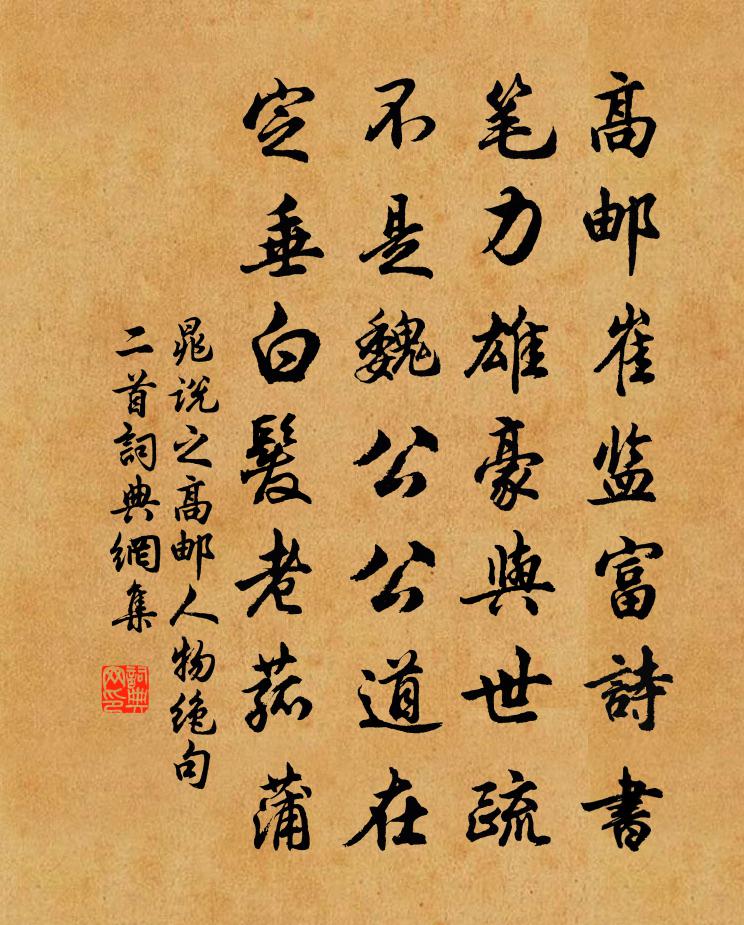 高邮崔监富詩書
笔力雄豪與世疏
不是魏公公道在
定垂白髮老菰蒲
晁说之高邮人物绝句
二首詞典網集
詞典
网印